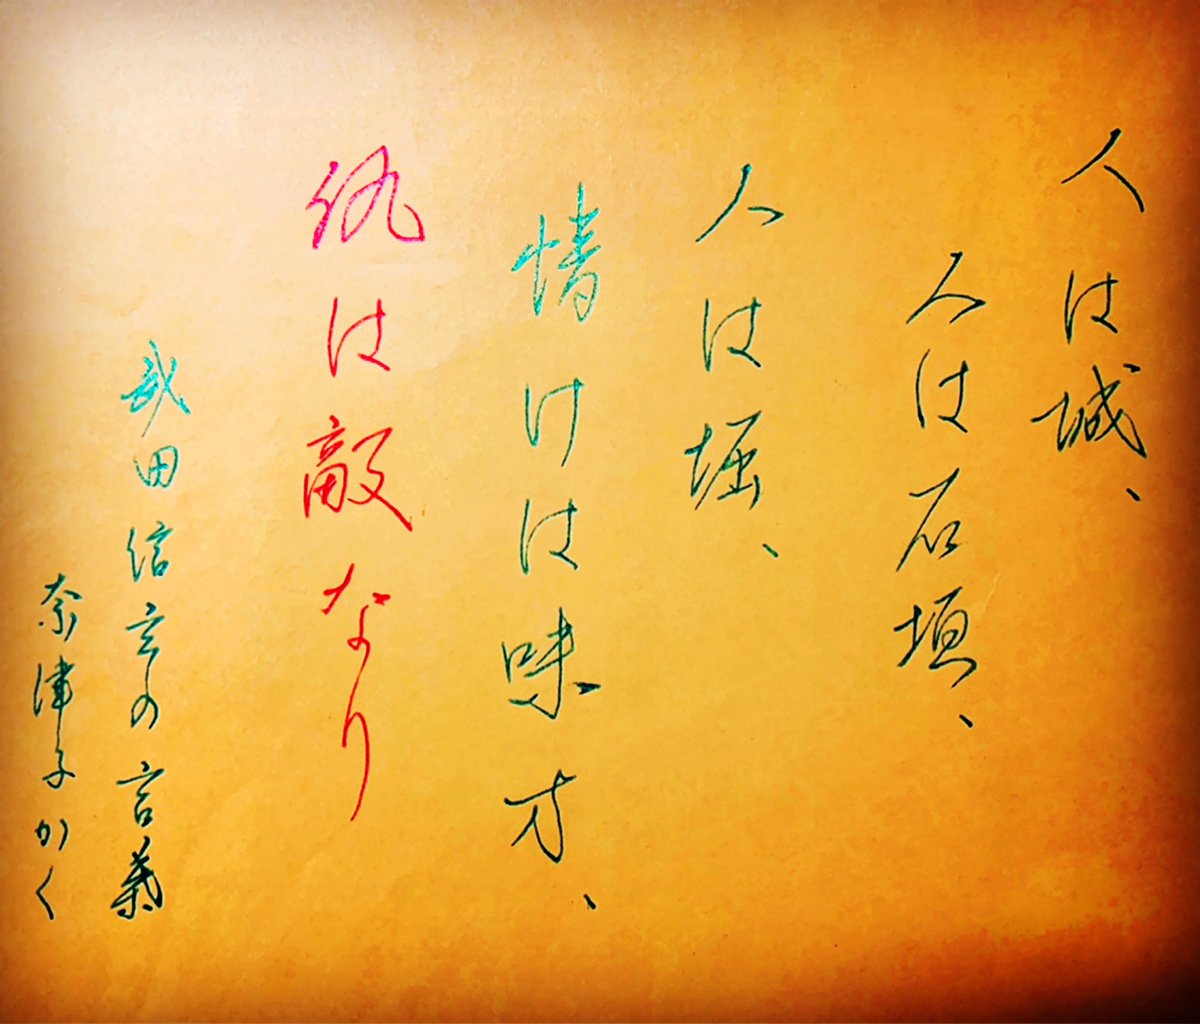 人は城、
人は石垣、
人は堀、
情けは味方、
仇は敵なり
武田信玄の言葉
奈津子かく